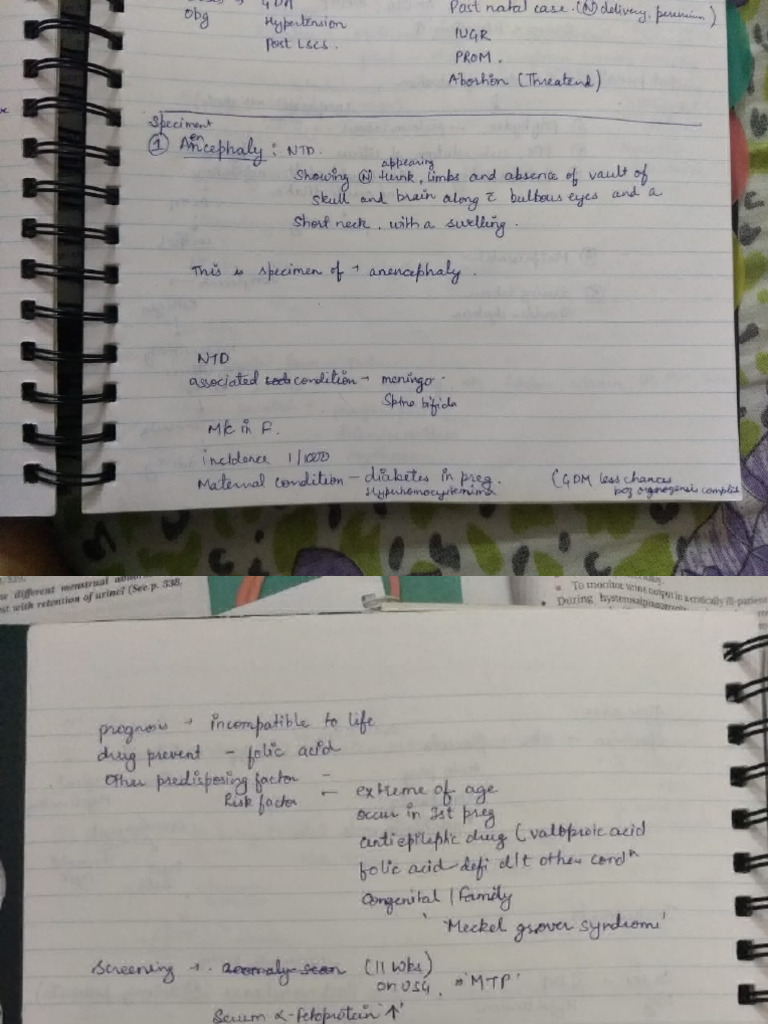 Obg
Hypertension
Post LSCS.
Post natal case. (N) delivery, peremium)
IUGR
PROM.
Abortion (Threatend)
Speciment
① Anencephaly: NTD.
Showing (N) appearing trunk, limbs and absence of vault of
skull and brain along c̄ bulbous eyes and a
Short neck. with a swelling.
This is specimen of → anencephaly.
NTD
associated condition → meningo
Spina bifida
M/c in F.
incidence 1/1000
Maternal condition - diabetes in preg. (GDM less chances
Hyperhomocystenimia bcz organogensis complete
different menstrual
with retention of urine? (See p. 338,
To monitor urine output in a critically ill-patient
During
prognosis → incompatible to life
drug prevent - folic acid
Other predisposing factor -
Risk factor ← extreme of age
occur in 1st preg
antiepileptic drug (valoproic acid
folic acid defi d/t other condⁿ
Congenital / Family
'Meckel grover syndrome'
Screening → . anomaly scan (11 wks)
on USG. → 'MTP'
Serum α-fetoprotein '↑'